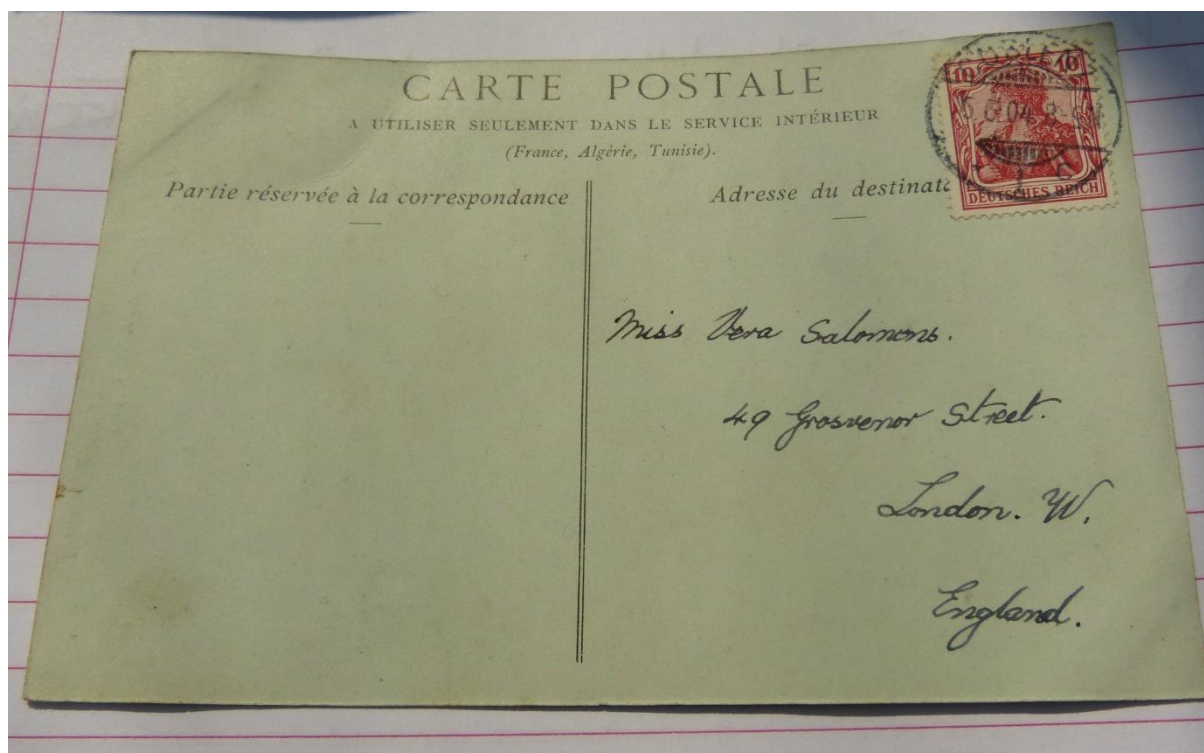 CARTE POSTALE
A UTILISER SEULEMENT DANS LE SERVICE INTÉRIEUR
(France, Algérie, Tunisie).
Partie réservée à la correspondance
Adresse du destinat
10 10
04
DEUTSCHES REICH
Miss Vera Salomons.
49 Grosvenor Street.
London. W.
England.